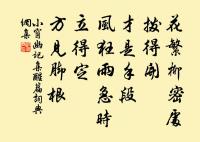 花繁柳密處
拔得開
才是手段
風狂雨急時
立得定
方見腳根
小窗幽記集醒篇詞典
網集